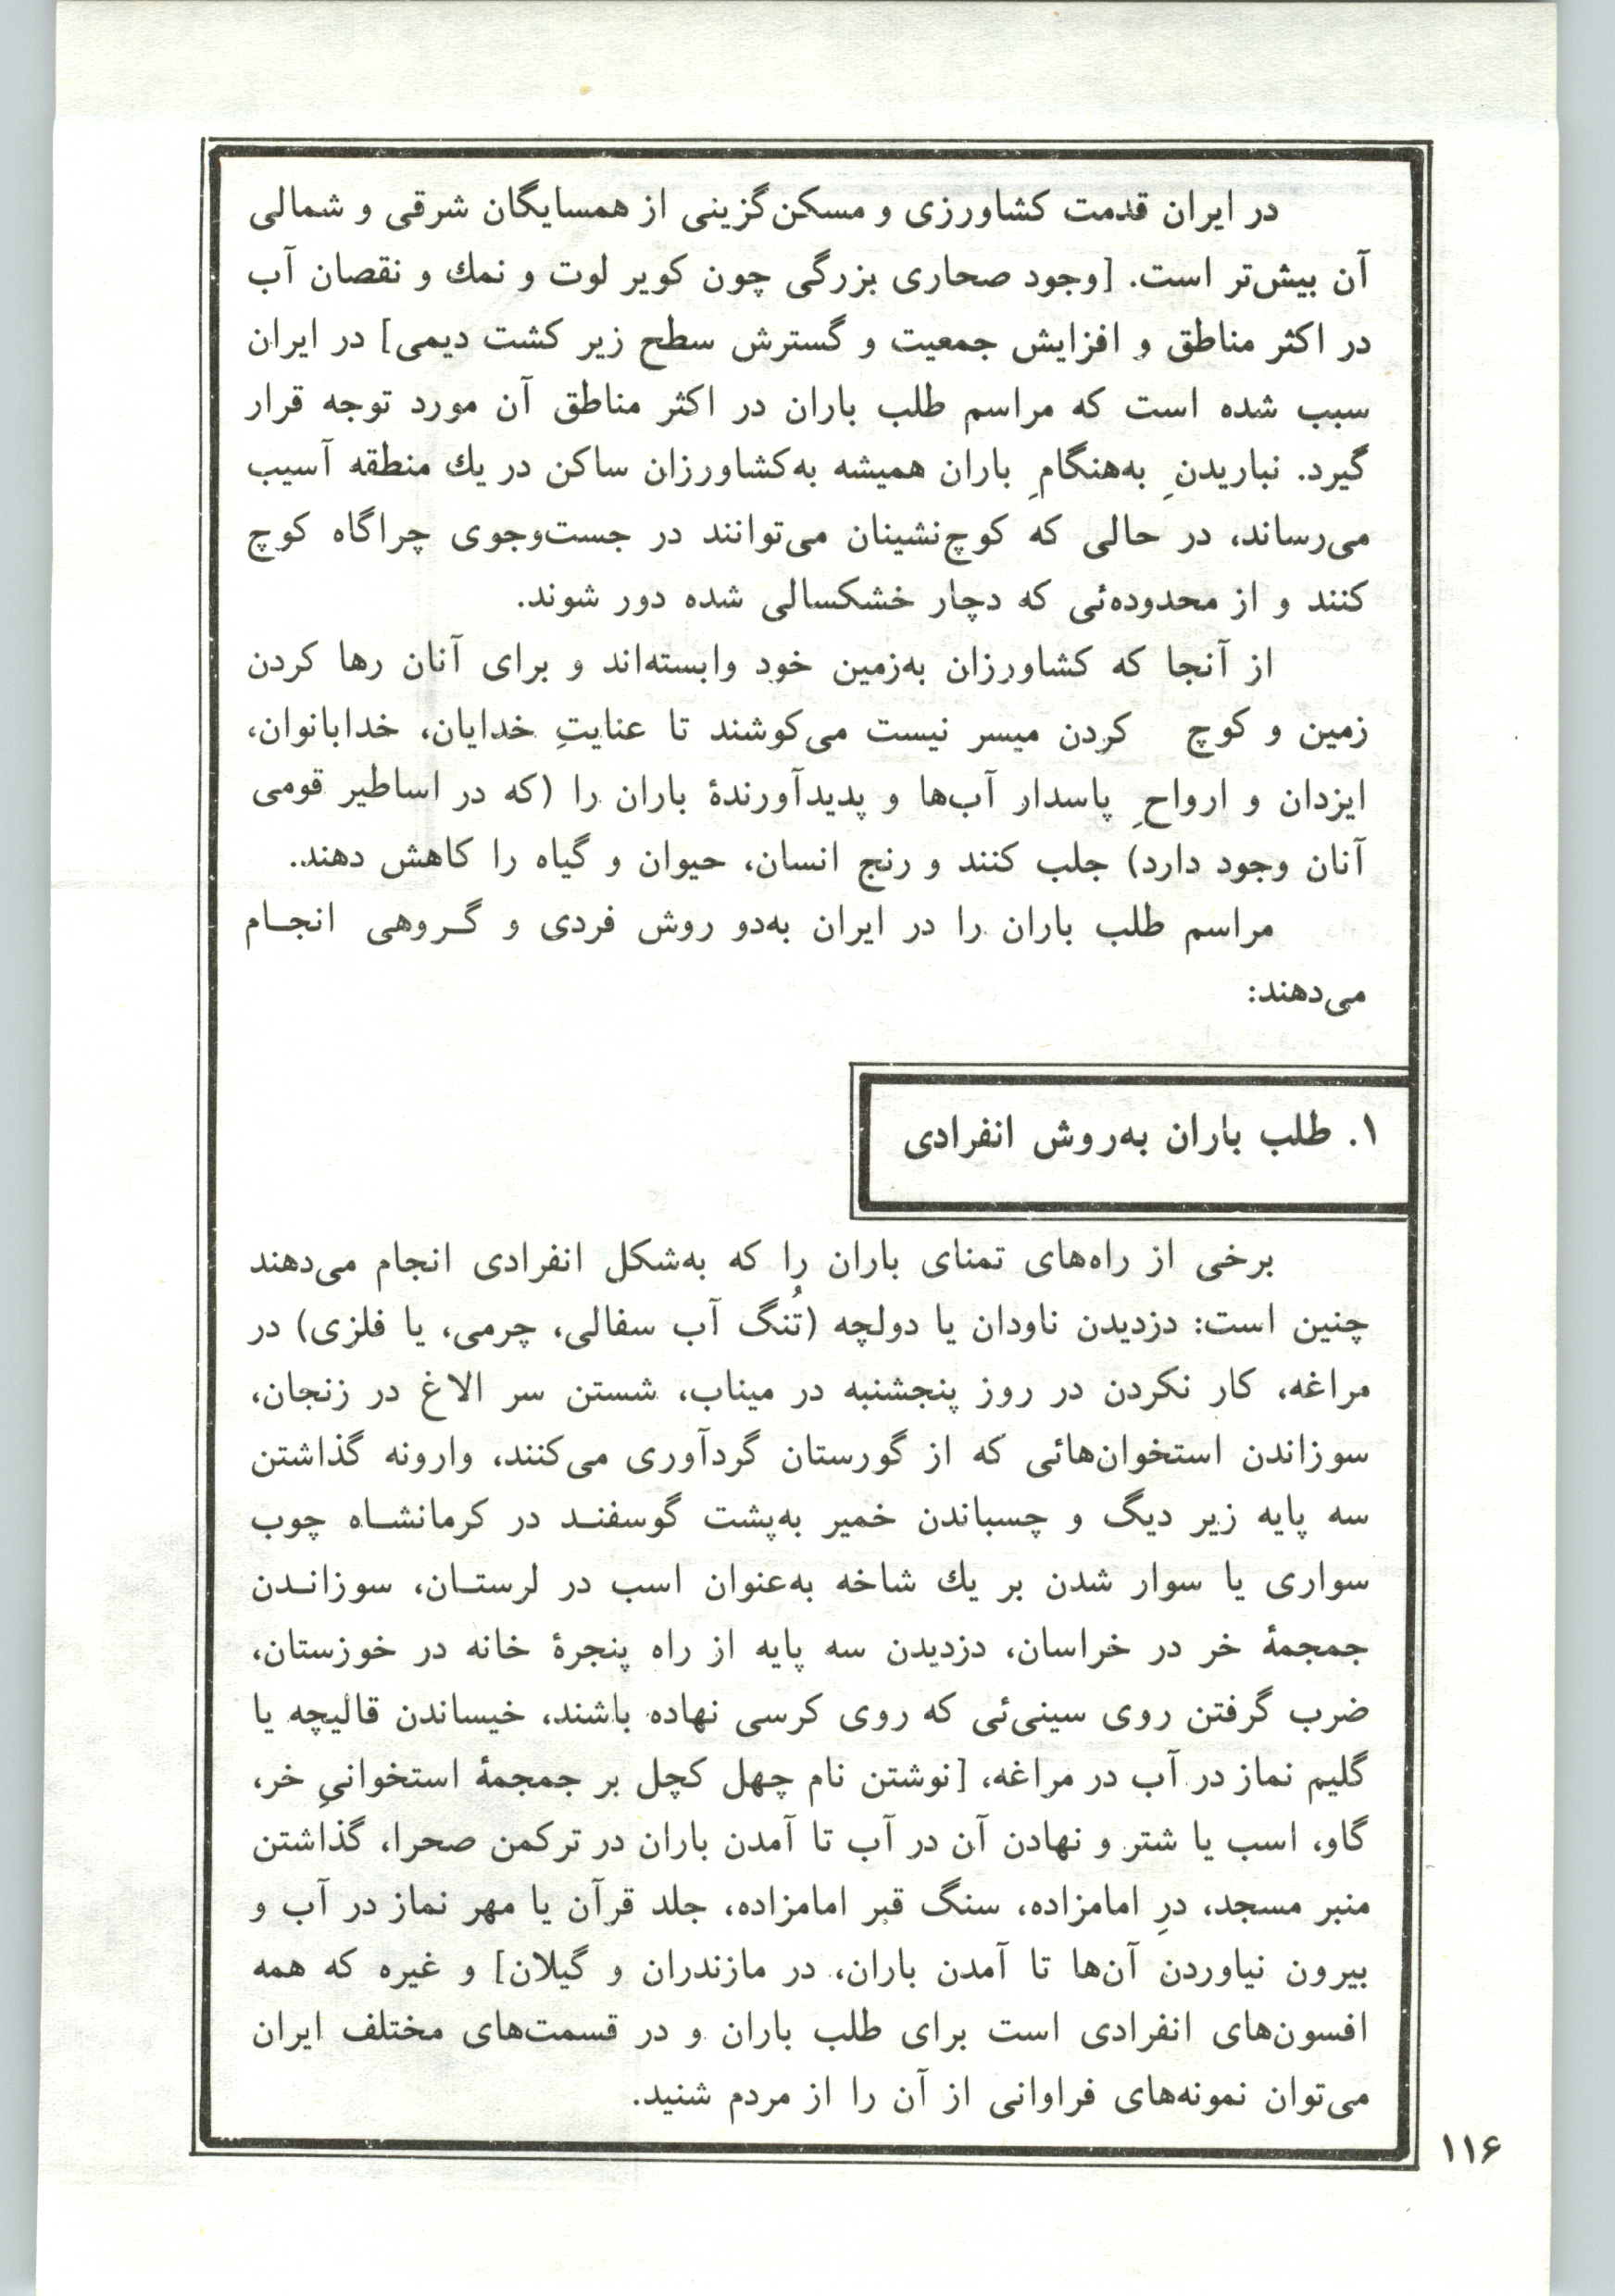 در ایران قدمت کشاورزی و مسکن‌گزینی از همسایگان شرقی و شمالی
آن بیش‌تر است. [وجود صحاری بزرگی چون کویر لوت و نمك و نقصان آب
در اکثر مناطق و افزایش جمعیت و گسترش سطح زیر کشت دیمی] در ایران
سبب شده است که مراسم طلب باران در اکثر مناطق آن مورد توجه قرار
گیرد. نباریدنِ به‌هنگامِ باران همیشه به‌کشاورزان ساکن در یك منطقه آسیب
می‌رساند، در حالی که کوچ‌نشینان می‌توانند در جست‌وجوی چراگاه کوچ
کنند و از محدوده‌ئی که دچار خشکسالی شده دور شوند.
از آنجا که کشاورزان به‌زمین خود وابسته‌اند و برای آنان رها کردن
زمین و کوچ کردن میسر نیست می‌کوشند تا عنایتِ خدایان، خدابانوان،
ایزدان و ارواحِ پاسدار آب‌ها و پدیدآورندهٔ باران را (که در اساطیر قومی
آنان وجود دارد) جلب کنند و رنج انسان، حیوان و گیاه را کاهش دهند.
مراسم طلب باران را در ایران به‌دو روش فردی و گـروهی انجـام
می‌دهند:
۱. طلب باران به‌روش انفرادی
برخی از راه‌های تمنای باران را که به‌شکل انفرادی انجام می‌دهند
چنین است: دزدیدن ناودان یا دولچه (تُنگ آب سفالی، چرمی، یا فلزی) در
مراغه، کار نکردن در روز پنجشنبه در میناب، شستن سر الاغ در زنجان،
سوزاندن استخوان‌هائی که از گورستان گردآوری می‌کنند، وارونه گذاشتن
سه پایه زیر دیگ و چسباندن خمیر به‌پشت گوسفنـد در کرمانشـاه چوب
سواری یا سوار شدن بر یك شاخه به‌عنوان اسب در لرستـان، سوزانـدن
جمجمهٔ خر در خراسان، دزدیدن سه پایه از راه پنجرهٔ خانه در خوزستان،
ضرب گرفتن روی سینی‌ئی که روی کرسی نهاده باشند، خیساندن قالیچه یا
گلیم نماز در آب در مراغه، [نوشتن نام چهل کچل بر جمجمهٔ استخوانیِ خر،
گاو، اسب یا شتر و نهادن آن در آب تا آمدن باران در ترکمن صحرا، گذاشتن
منبر مسجد، درِ امامزاده، سنگ قبر امامزاده، جلد قرآن یا مهر نماز در آب و
بیرون نیاوردن آن‌ها تا آمدن باران، در مازندران و گیلان] و غیره که همه
افسون‌های انفرادی است برای طلب باران و در قسمت‌های مختلف ایران
می‌توان نمونه‌های فراوانی از آن را از مردم شنید.
۱۱۶